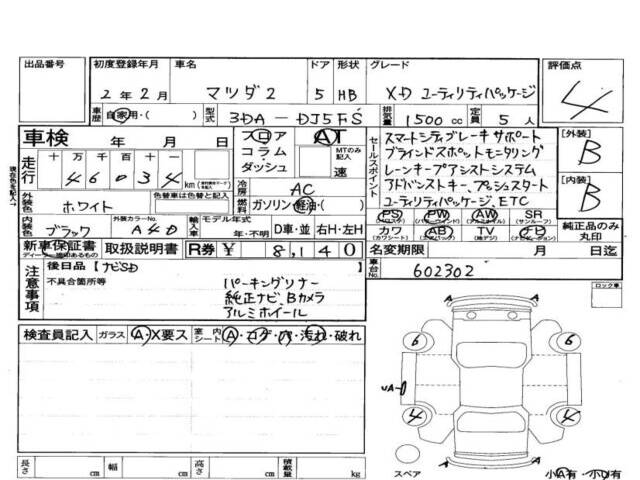 出品番号 初度登録年月 車名 ドア 形状 グレード 評価点
2年2月 マツダ2 5 HB XD ユーティリティパッケージ 4
車歴 自家用・( ) 型式 3DA-DJ5FS 排気量 1500cc 定員 5人
車検 年 月 日 フロア AT セールスポイント スマートシティブレーキサポート [外装]
走行 十万千百十 46034 km コラム MTのみ記入 ブラインドスポットモニタリング B
ダッシュ 速 レーンキープアシストシステム
色替車は色替と記入 冷房 AC アドバンストキー、プッシュスタート [内装]
外装色 ホワイト 燃料 ガソリン・軽油・( ) ユーティリティパッケージ、ETC B
内装色 ブラック 外装カラーNo. A4D 輸入車 モデル年式 年・不明 D車・並 右H・左H PS PW AW SR
カワ AB TV 純正品のみ丸印
新車保証書 取扱説明書 R券 ¥ 8,140 名変期限 月 日迄
注意事項 後日品【ナビSD 車台No. 602302
不具合箇所等 パーキングソナー ロック車
純正ナビ、Bカメラ
アルミホイール
検査員記入 ガラス A・X要ス 室内シート A・コゲ・穴・汚れ・破れ
A A
6 6
UA-D
4 4
A A
長さ cm 幅 cm 高さ cm 積載量 kg スペア 小A有・小U有